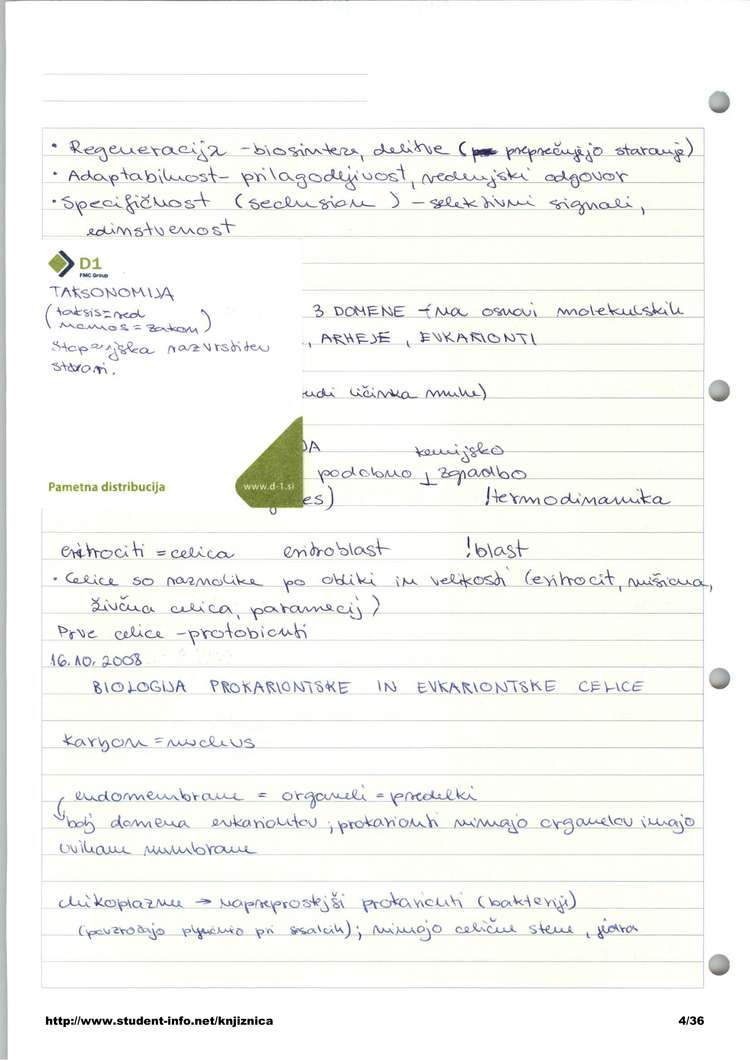 • Regeneracija - biosinteze, delitve ( preprečujejo staranje)
• Adaptabilnost - prilagodljivost, vedenjski odgovor
• Specifičnost (seclusion) - selektivni signali,
edinstvenost
D1
FMC Group
TAKSONOMIJA
(taksis = red
nomos = zakon)
Stopenjska razvrstitev
stvari.
Pametna distribucija
www.d-1.si
3 DOMENE - (na osnovi molekulskih
, ARHEJE, EVKARIONTI
tudi ličinka muhe)
kemijsko
podobno ⊥ zgradbo
es) !termodinamika
eritrociti = celica eritroblast !blast
• Celice so raznolike po obliki in velikosti (eritrocit, mišična,
živčna celica, paramecij)
Prve celice - protobionti
16.10.2008
BIOLOGIJA PROKARIONTSKE IN EVKARIONTSKE CELICE
karyon = nucleus
endomembrane = organeli = predelki
bolj domena evkariontov; prokarionti nimajo organelov imajo
uvihane membrane
mikoplazme → najpreprostejši prokarionti (bakterije)
(povzročajo pljučnico pri sesalcih); nimajo celične stene, jedra
http://www.student-info.net/knjiznica
4/36